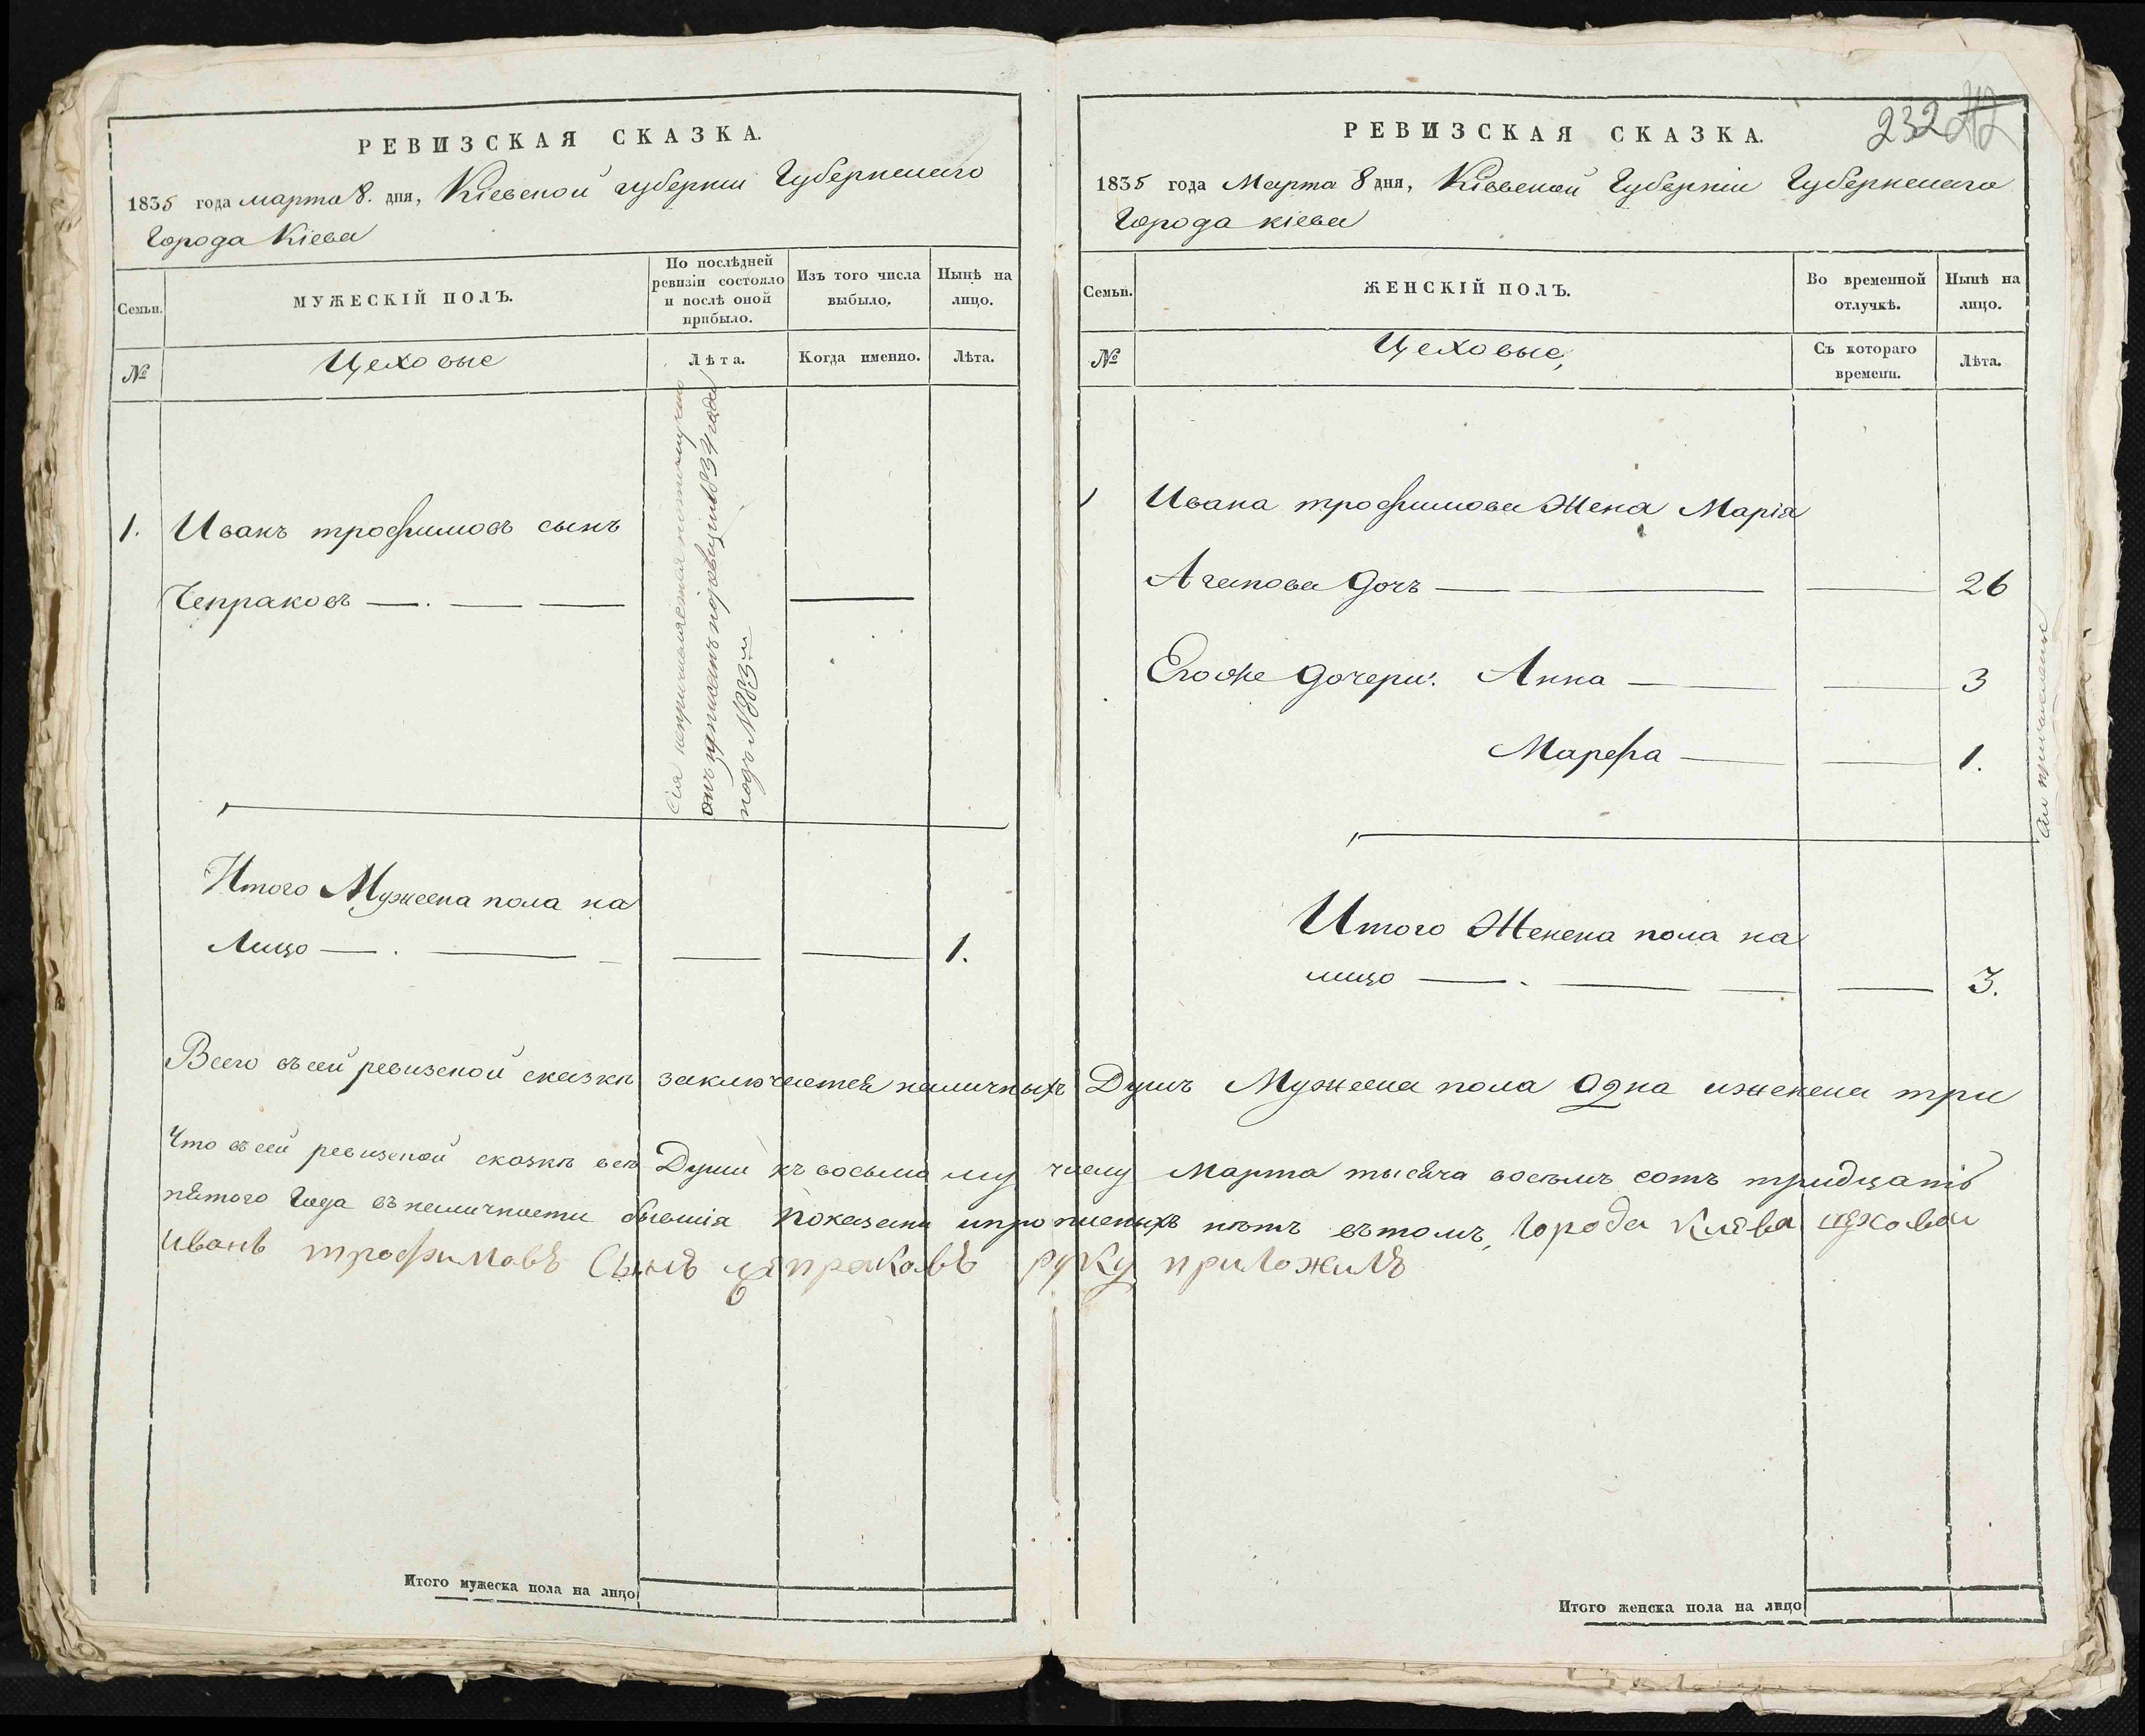 РЕВИЗСКАЯ СКАЗКА.
1835 года марта 8. дня, Кіевской губерніи Губернскаго
Города Кіева
Семьи.
МУЖЕСКІЙ ПОЛЪ.
По послѣдней ревизіи состояло и послѣ оной прибыло.
Изъ того числа выбыло.
Нынѣ на лицо.
№
Цеховые
Лѣта.
Когда именно.
Лѣта.
1. Иванъ трофимовъ сынъ
Чепраковъ
Сія
подъ № 3883м
Итого Мужеска пола на
Лицо 1.
РЕВИЗСКАЯ СКАЗКА.
232
1835 года Марта 8 дня, Кіевской Губерніи Губернскаго
Города кіева
Семьи.
ЖЕНСКІЙ ПОЛЪ.
Во временной отлучкѣ.
Нынѣ на лицо.
№
Цеховые,
Съ котораго времени.
Лѣта.
1 Ивана трофимова Жена Марія
Агапова дочь 26
Егоже дочери: Анна 3
Марѳа 1.
Итого Женска пола на
лицо 3.
Всего въ сей ревизской сказкѣ заключается наличныхъ Душъ Мужеска пола Одна иженска три
Что въ сей ревизской сказкѣ всѣ Души къ восьмому числу Марта тысяча восѣмъ сотъ тридцатъ
пятого Года въ наличности бывшія показаны ипрописныхъ нѣтъ вътомъ, Города Киева цеховаи
иванъ трофимовъ Сынъ чепраковъ руку приложилъ
Итого мужеска пола на лицо
Итого женска пола на лицо